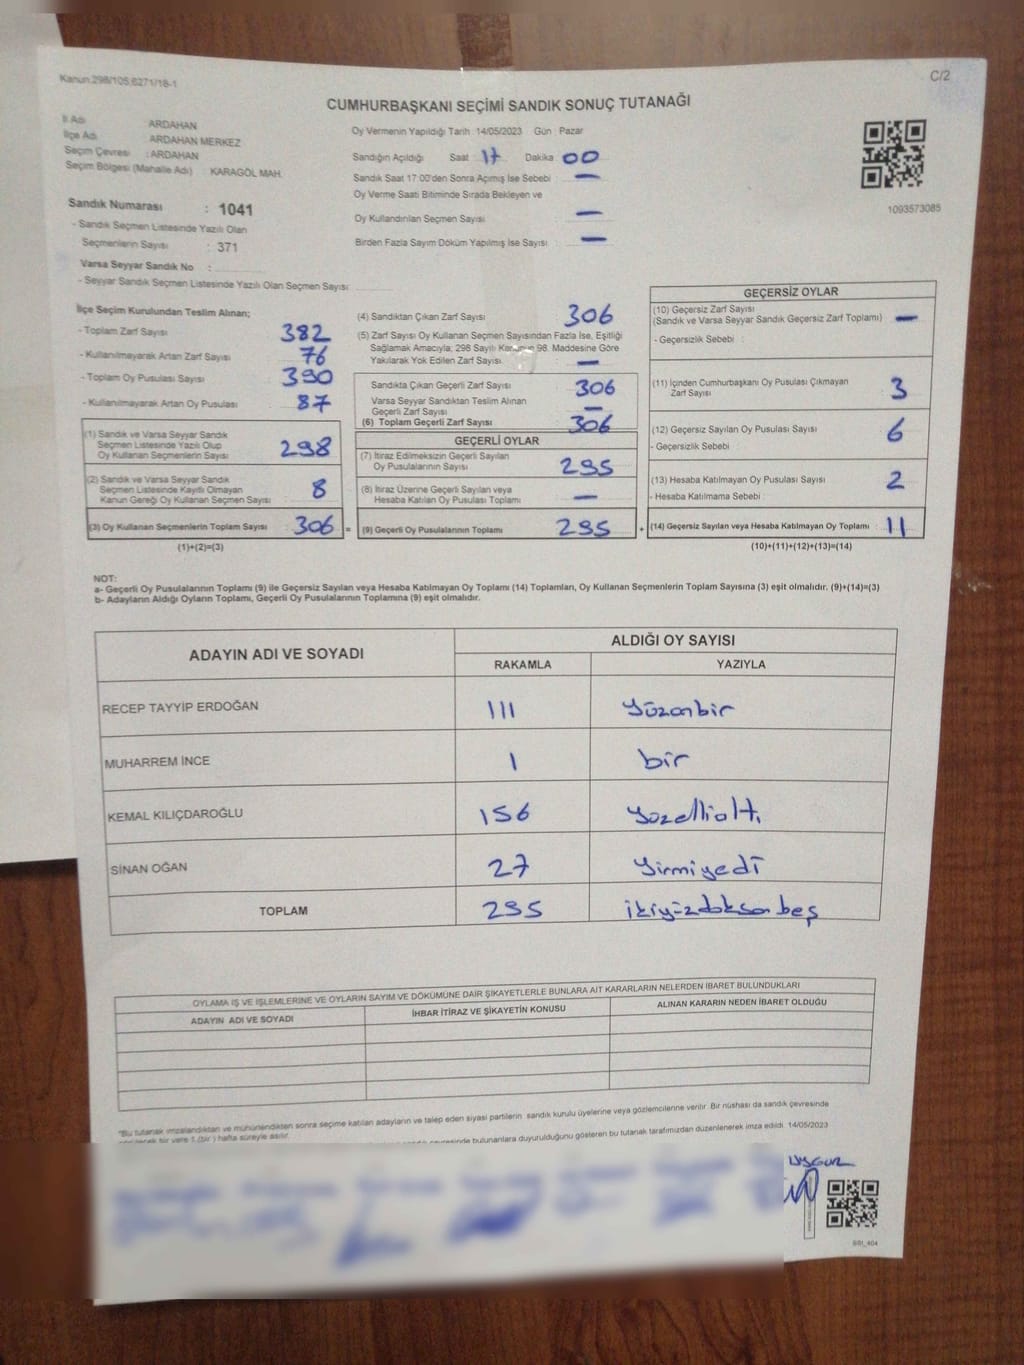 Kanun.298/105.6271/18-1
C/2
CUMHURBAŞKANI SEÇİMİ SANDIK SONUÇ TUTANAĞI
İl Adı ARDAHAN
İlçe Adı ARDAHAN MERKEZ
Seçim Çevresi : ARDAHAN
Seçim Bölgesi (Mahalle Adı) : KARAGÖL MAH.
Sandık Numarası : 1041
- Sandık Seçmen Listesinde Yazılı Olan
Seçmenlerin Sayısı : 371
Varsa Seyyar Sandık No :
- Seyyar Sandık Seçmen Listesinde Yazılı Olan Seçmen Sayısı :
Oy Vermenin Yapıldığı Tarih : 14/05/2023 Gün : Pazar
Sandığın Açıldığı Saat 17 Dakika 00
Sandık Saat 17:00'den Sonra Açımış İse Sebebi : —
Oy Verme Saati Bitiminde Sırada Bekleyen ve
Oy Kullandırılan Seçmen Sayısı : —
Birden Fazla Sayım Döküm Yapılmış İse Sayısı : —
1093573085
İlçe Seçim Kurulundan Teslim Alınan;
- Toplam Zarf Sayısı : 382
- Kullanılmayarak Artan Zarf Sayısı : 76
- Toplam Oy Pusulası Sayısı : 390
- Kullanılmayarak Artan Oy Pusulası : 87
(1) Sandık ve Varsa Seyyar Sandık
Seçmen Listesinde Yazılı Olup
Oy Kullanan Seçmenlerin Sayısı : 298
(2) Sandık ve Varsa Seyyar Sandık
Seçmen Listesinde Kayıtlı Olmayan
Kanun Gereği Oy Kullanan Seçmen Sayısı : 8
(3) Oy Kullanan Seçmenlerin Toplam Sayısı : 306 =
(1)+(2)=(3)
(4) Sandıktan Çıkan Zarf Sayısı : 306
(5) Zarf Sayısı Oy Kullanan Seçmen Sayısından Fazla İse, Eşitliği
Sağlamak Amacıyla, 298 Sayılı Kanunun 98. Maddesine Göre
Yakılarak Yok Edilen Zarf Sayısı : —
Sandıkta Çıkan Geçerli Zarf Sayısı : 306
Varsa Seyyar Sandıktan Teslim Alınan
Geçerli Zarf Sayısı : —
(6) Toplam Geçerli Zarf Sayısı : 306
GEÇERLİ OYLAR
(7) İtiraz Edilmeksizin Geçerli Sayılan
Oy Pusulalarının Sayısı : 295
(8) İtiraz Üzerine Geçerli Sayılan veya
Hesaba Katılan Oy Pusulası Toplamı : —
(9) Geçerli Oy Pusulalarının Toplamı : 295 +
GEÇERSİZ OYLAR
(10) Geçersiz Zarf Sayısı
(Sandık ve Varsa Seyyar Sandık Geçersiz Zarf Toplamı) : —
- Geçersizlik Sebebi :
(11) İçinden Cumhurbaşkanı Oy Pusulası Çıkmayan
Zarf Sayısı : 3
(12) Geçersiz Sayılan Oy Pusulası Sayısı : 6
- Geçersizlik Sebebi :
(13) Hesaba Katılmayan Oy Pusulası Sayısı : 2
- Hesaba Katılmama Sebebi :
(14) Geçersiz Sayılan veya Hesaba Katılmayan Oy Toplamı : 11
(10)+(11)+(12)+(13)=(14)
NOT:
a- Geçerli Oy Pusulalarının Toplamı (9) ile Geçersiz Sayılan veya Hesaba Katılmayan Oy Toplamı (14) Toplamları, Oy Kullanan Seçmenlerin Toplam Sayısına (3) eşit olmalıdır. (9)+(14)=(3)
b- Adayların Aldığı Oyların Toplamı, Geçerli Oy Pusulalarının Toplamına (9) eşit olmalıdır.
ADAYIN ADI VE SOYADI ALDIĞI OY SAYISI
RAKAMLA YAZIYLA
RECEP TAYYİP ERDOĞAN 111 Yüzonbir
MUHARREM İNCE 1 bir
KEMAL KILIÇDAROĞLU 156 Yüzellialtı
SİNAN OĞAN 27 Yirmiyedi
TOPLAM 295 ikiyüzdoksanbeş
OYLAMA İŞ VE İŞLEMLERİNE VE OYLARIN SAYIM VE DÖKÜMÜNE DAİR ŞİKAYETLERLE BUNLARA AİT KARARLARIN NELERDEN İBARET BULUNDUKLARI
ADAYIN ADI VE SOYADI İHBAR İTİRAZ VE ŞİKAYETİN KONUSU ALINAN KARARIN NEDEN İBARET OLDUĞU
"Bu tutanak imzalandıktan ve mühürlendikten sonra seçime katılan adayların ve talep eden siyasi partilerin sandık kurulu üyelerine veya gözlemcilerine verilir. Bir nüshası da sandık çevresinde
bir yere 1 (bir) hafta süreyle asılır.
bulunanlara duyurulduğunu gösteren bu tutanak tarafımızdan düzenlenerek imza edildi. 14/05/2023
UYGUR